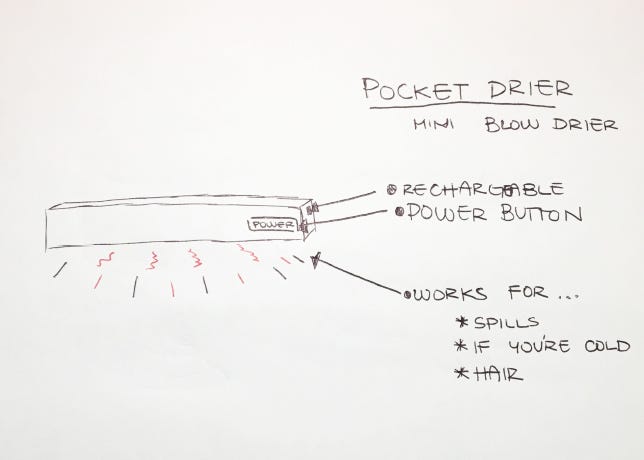 POCKET DRIER
MINI BLOW DRIER
RECHARGEABLE
POWER
POWER BUTTON
WORKS FOR...
* SPILLS
* IF YOU'RE COLD
* HAIR